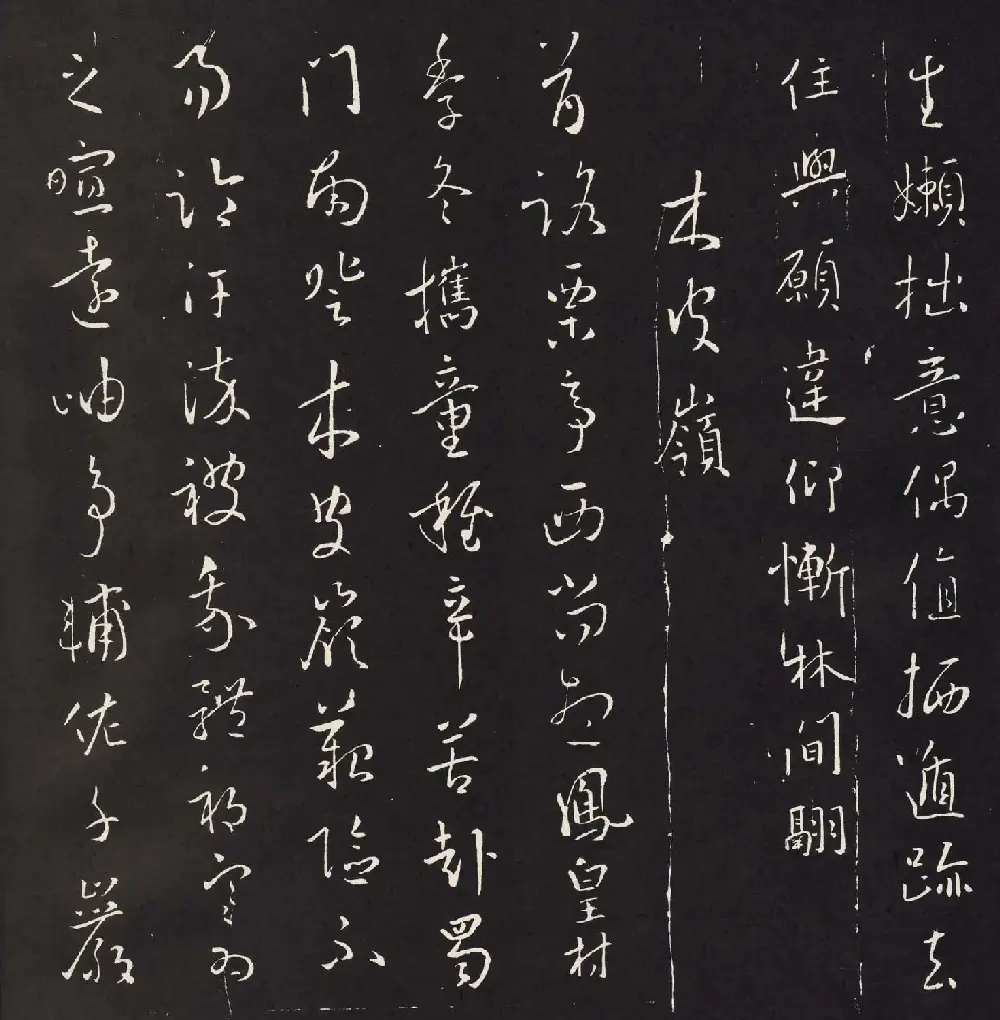 生嬾拙意偶值栖遁跡去
住與願違仰慚林間翮
木皮嶺
首路栗亭西尚想鳳皇村
季冬攜童稚辛苦赴蜀
門南登木皮嶺艱險不
易論汗流被我體祁寒為
之暄遠岫爭輔佐千巖